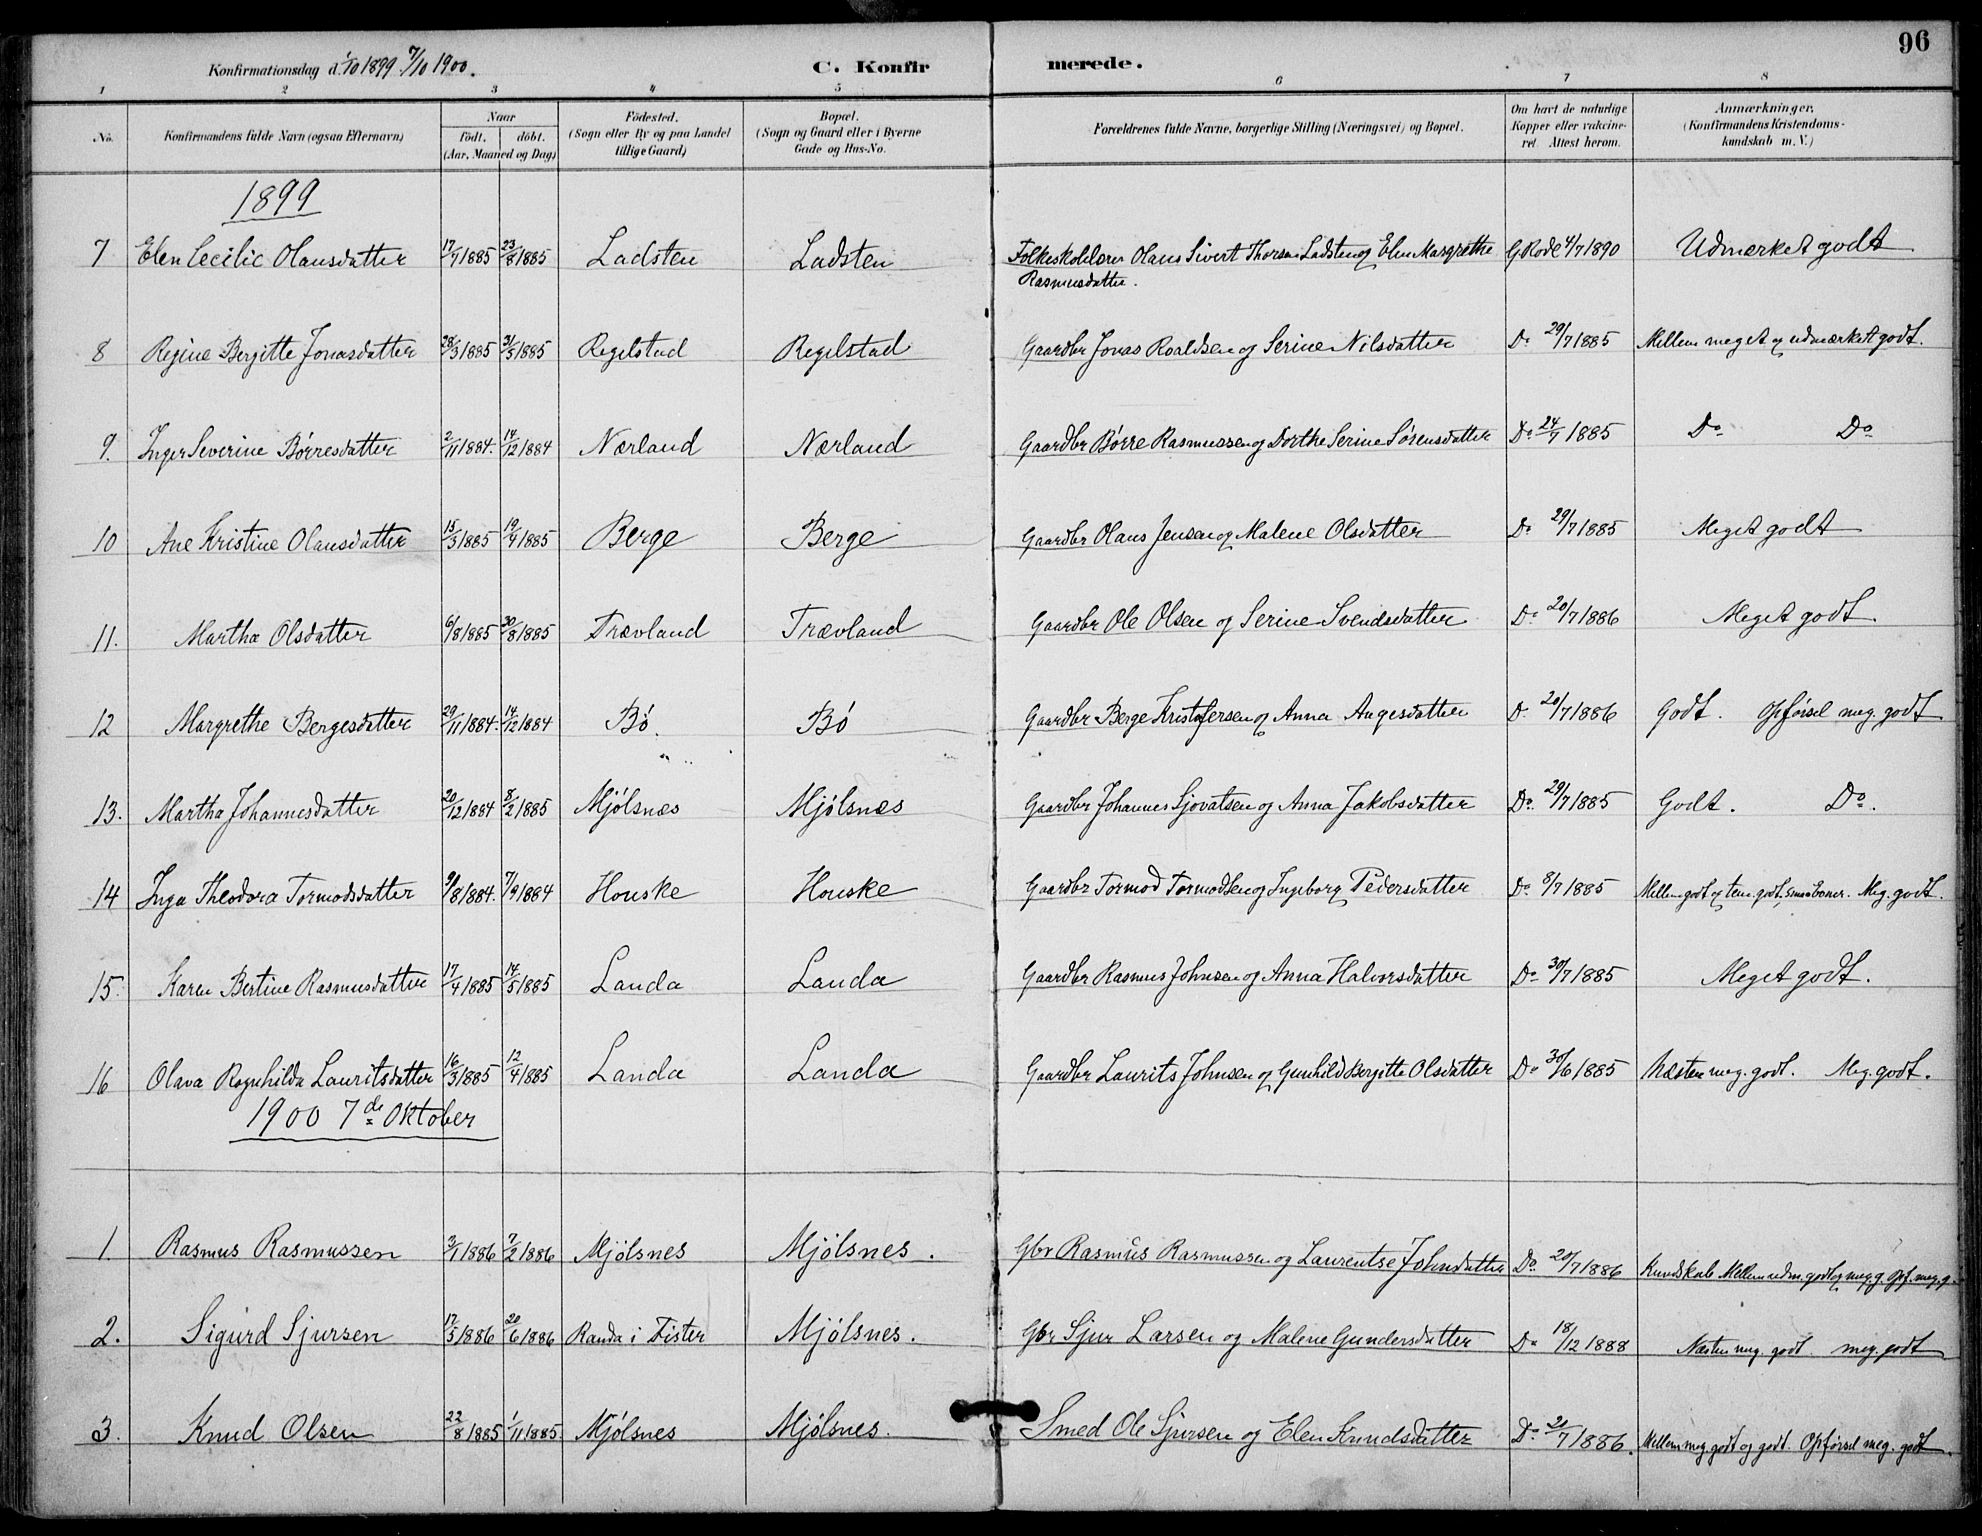 96
Konfirmationsdag d. 1/10 1899 7/10 1900.
C. Konfirmerede.
1 2 3 4 5 6 7 8
No. Konfirmandens fulde Navn (ogsaa Efternavn) Naar födt, döbt. (Aar, Maaned og Dag) Födested. (Sogn eller By og paa Landet tillige Gaard) Bopæl. (Sogn og Gaard eller i Byerne Gade og Hus-No. Forældrenes fulde Navne, borgerlige Stilling (Næringsvei) og Bopæl. Om havt de naturlige Kopper eller vakcineret. Attest herom. Anmærkninger, (Konfirmandens Kristendomskundskab m. V.)
1899
7 Elen Cecilie Olausdatter 17/7 1885 23/8 1885 Ladsten Ladsten Folkeskolelærer Olaus Sivert Thorsen Ladsten og Elen Margrethe Rasmusdatter. G Rode 4/7 1890 Udmærket godt
8 Regine Bergitte Jonasdatter 28/3 1885 31/5 1885 Regelstad Regelstad Gaardbr Jonas Roaldsen og Serine Nilsdatter Do 29/7 1885 Mellem meget og udmærket godt.
9. Inger Severine Börresdatter 2/11 1884. 14/12 1884 Nærland Nærland Gaardbr Börre Rasmussen og Dorthe Serine Sörensdatter Do 24/7 1885 Do Do
10 Ane Kristine Olausdatter 15/3 1885 19/4 1885 Berge Berge Gaardbr Olaus Jensen og Malene Olsdatter Do 29/7 1885 Meget godt
11. Martha Olsdatter 6/8 1885 30/8 1885 Trævland Trævland Gaardbr Ole Olsen og Serine Svendsdatter Do 20/7 1886 Meget godt.
12 Margrethe Bergesdatter 29/11 1884. 14/12 1884 Bö. Bö Gaardbr Berge Kristofersen og Anna Aagesdatter Do 20/7 1886 Godt. Opförsel meg. godt
13. Martha Johannesdatter 20/12 1884 8/2 1885 Mjölsnæs Mjölsnæs Gaardbr Johannes Sjovatsen og Anna Jakobsdatter Do. 29/7 1885 Godt. Do.
14 Inga Theodora Tormodsdatter 9/8 1884. 7/9 1884 Houske Houske Gaardbr Tormod Tormodsen og Ingeborg Pedersdatter Do 8/7 1885 Mellem godt og tem. godt, smaa Evner. Meg. godt.
15. Karen Bertine Rasmusdatter 17/4 1885 14/5 1885 Landa Landa Gaardbr Rasmus Johnsen og Anna Halvorsdatter Do 30/7 1885 Meget godt.
16 Olava Ragnhilda Lauritsdatter 16/3 1885 12/4 1885 Landa Landa Gaardbr Laurits Johnsen og Gunhild Bergitte Olsdatter Do 30/6 1885 Næsten meg. godt. Meg. godt.
1900 7de Oktober
1. Rasmus Rasmussen 3/1 1886 7/2 1886 Mjölsnes Mjölsnes. Gbr Rasmus Rasmussen og Laurentse Johnsdatter Do 20/7 1886 Kundskab Mellem udm. godt og meg. g. Opf. meg. g.
2. Sigurd Sjursen 17/5 1886 20/6 1886 Randa i Fister Mjölsnes. Gbr Sjur Larsen og Malene Gundersdatter Do 18/12 1888 Næsten meg. godt. meg. godt
3. Knud Olsen 22/8 1885 1/11 1885. Mjölsnes Mjölsnes. Smed Ole Sjursen og Elen Knudsdatter Do 20/7 1886. Mellem meg. godt og godt. Opförsel meg. godt.